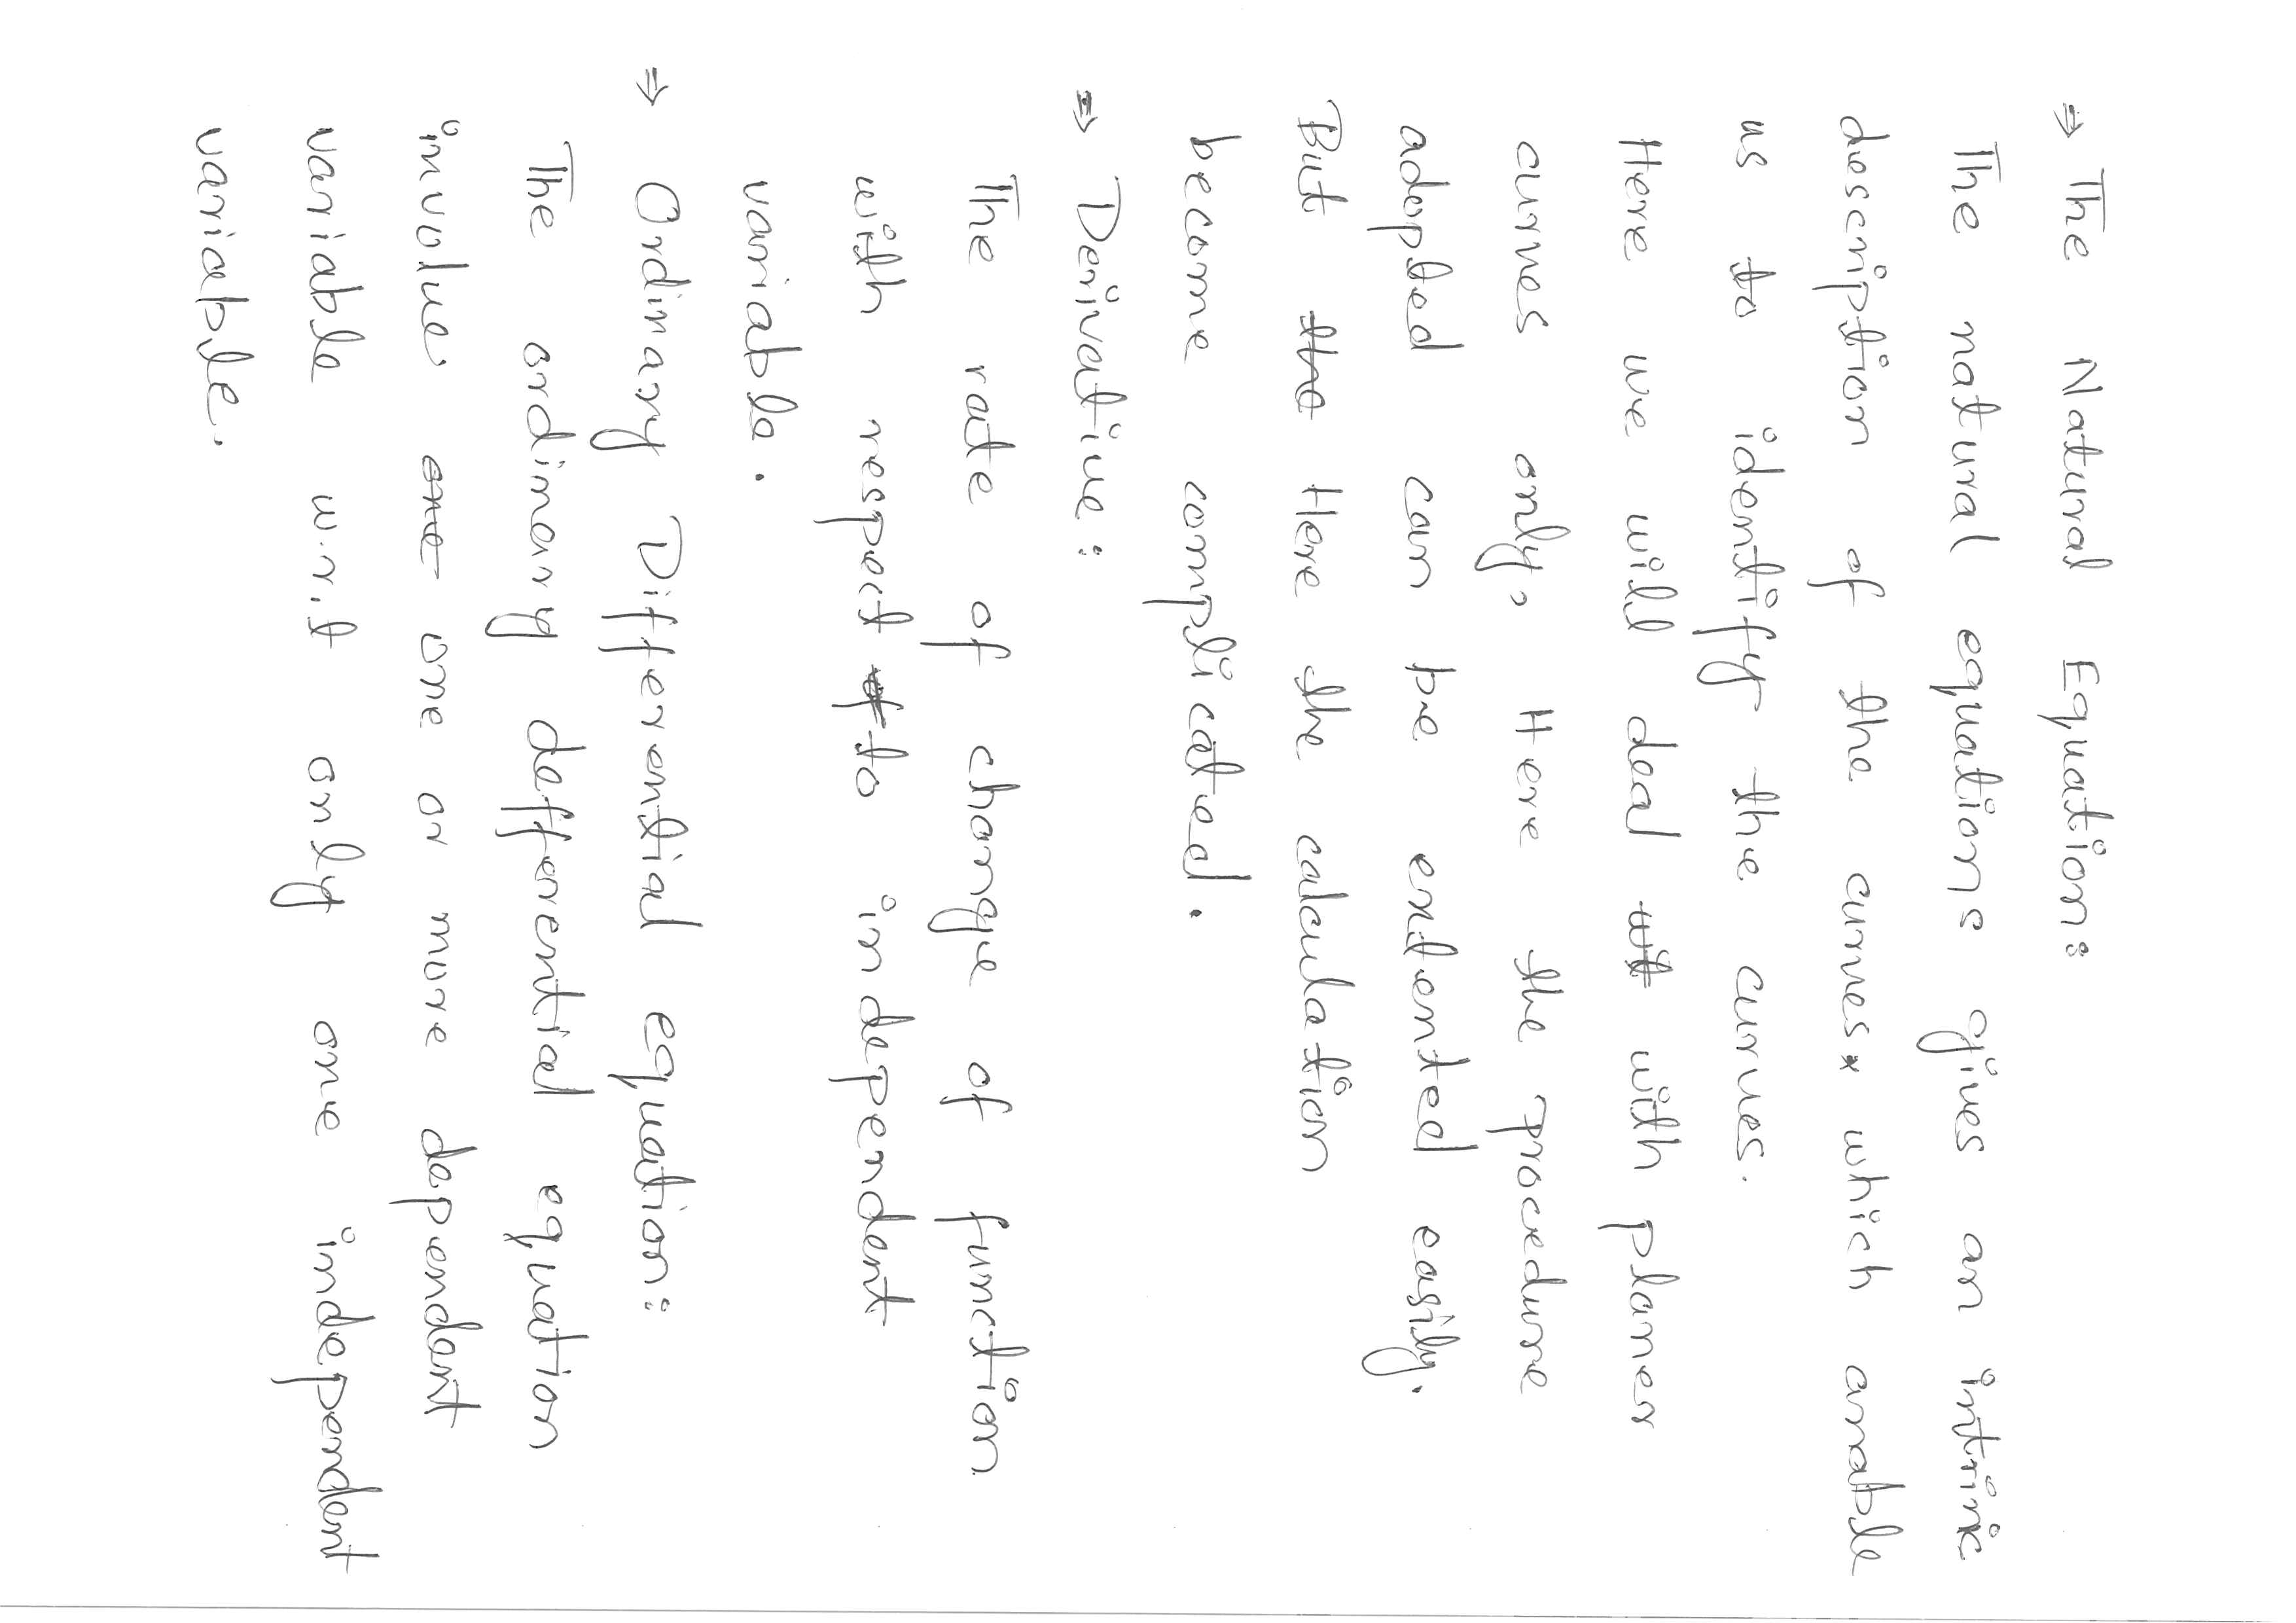 ⇒ The Natural Equation:
The natural equations gives an intrinic
description of the curves which anable
us to identify the curves.
Here we will deal ~~wit~~ with planer
curves only, Here the procedure
adopted can be extented easily.
But ~~the~~ Here the calculation
become complicated.
⇒ Derivative:
The rate of change of function
with respect ~~of~~ to independent
variable.
⇒ Ordinary Differential equation:
The ordinary defferential equation
involve ~~one~~ one or more dependent
variable w.r.t only one independent
variable.